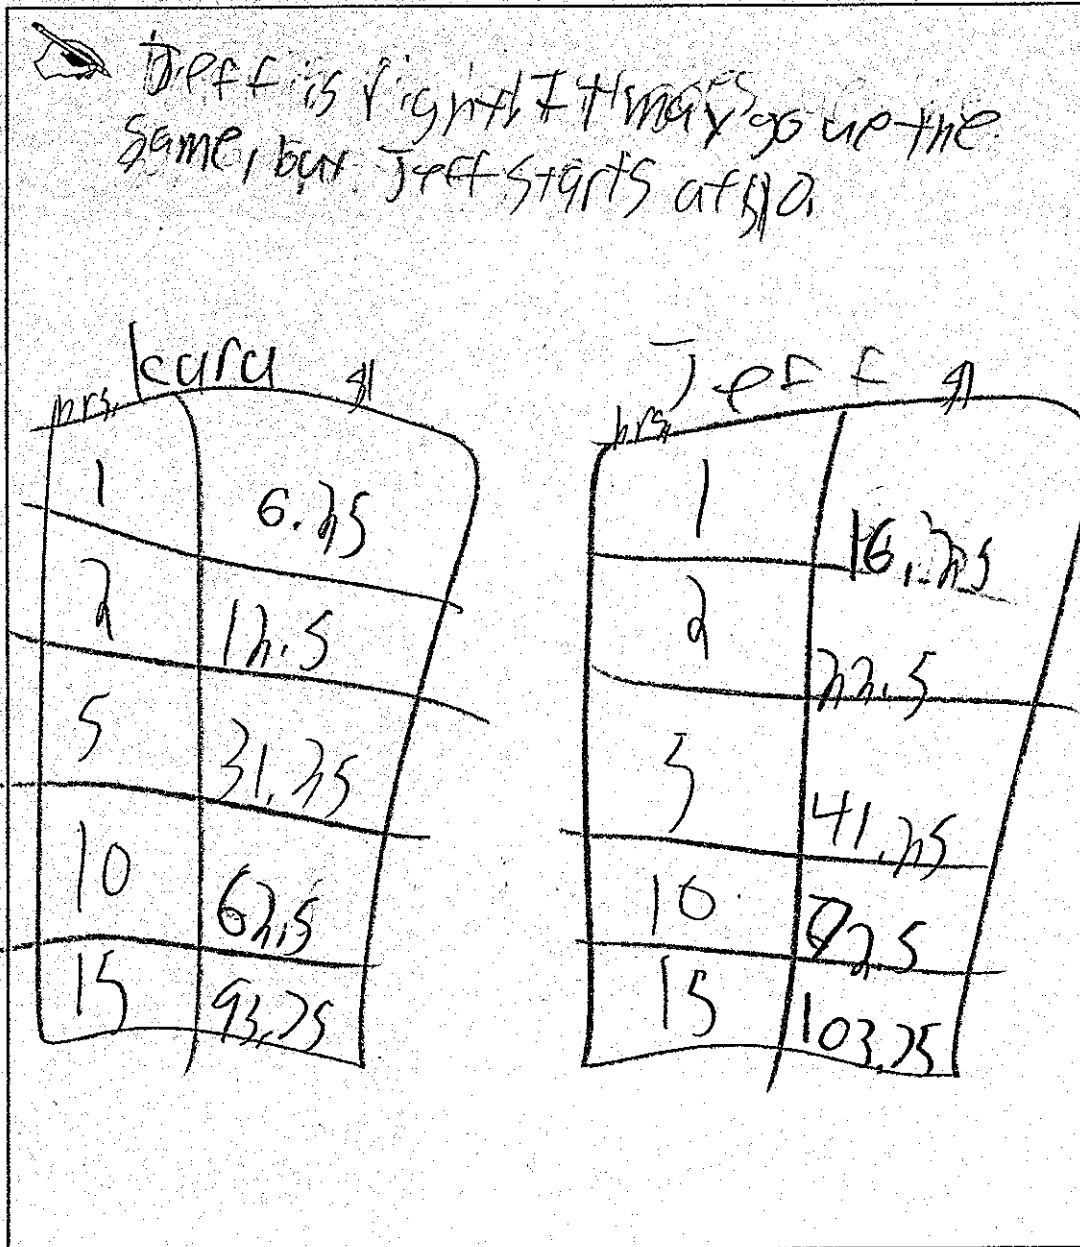 Jeff is right! It may go up the
same, but Jeff starts at $10.
Kara
hrs. $
1 6.25
2 12.5
5 31.25
10 62.5
15 93.75
Jeff
hrs. $
1 16.25
2 22.5
5 41.25
10
15 103.75